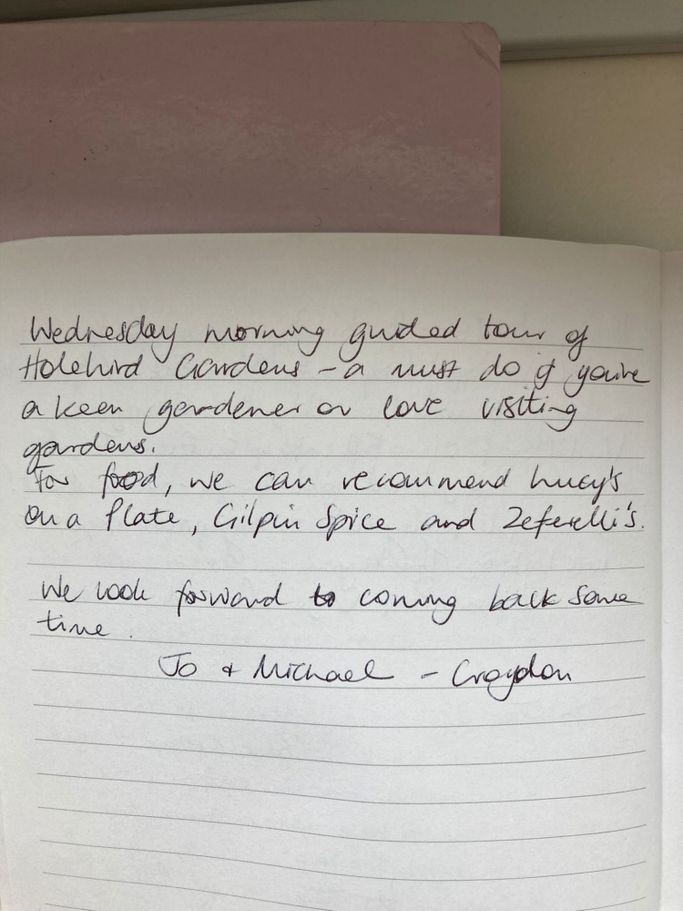 Wednesday morning guided tour of
Holehird Gardens - a must do if you're
a keen gardener or love visiting
gardens.
For food, we can recommend Lucy's
on a Plate, Gilpin Spice and Zeferelli's.
We look forward to coming back some
time.
Jo & Michael - Croydon